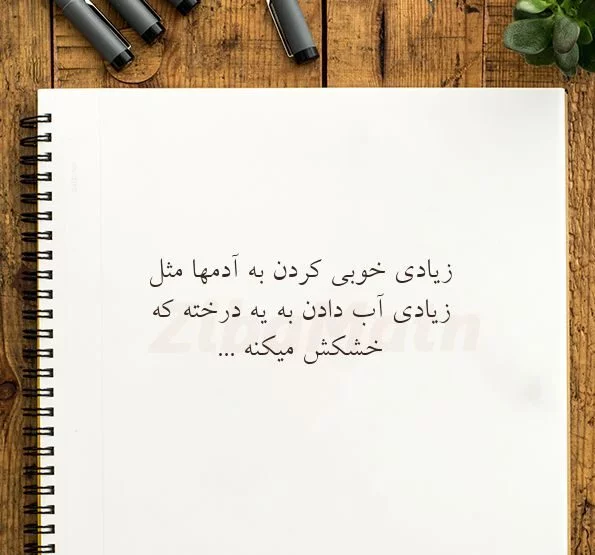 زیادی خوبی کردن به آدمها مثل
زیادی آب دادن به یه درخته که
خشکش میکنه ...
ZibaMatn